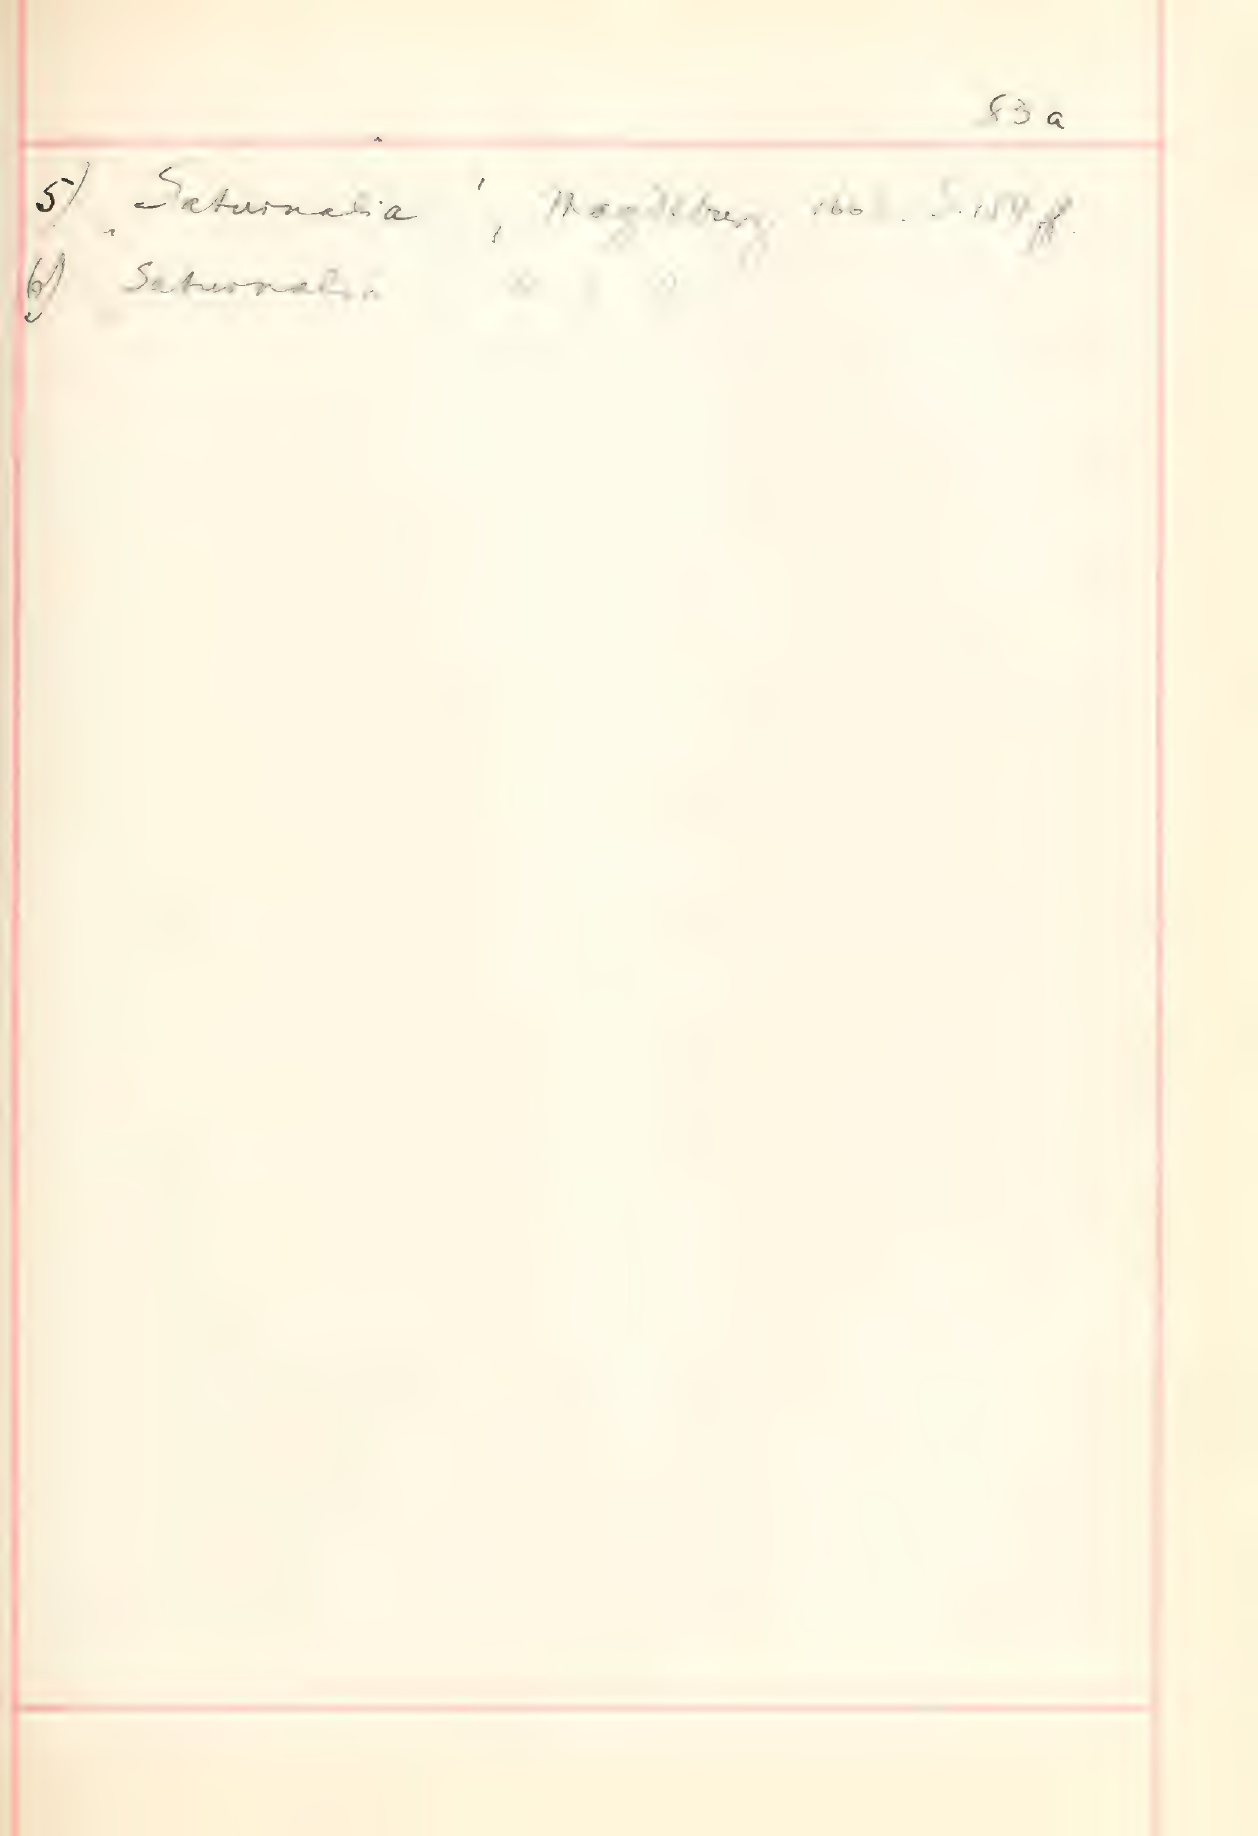 83 a
5) „Saturnalia‘, Magdeburg S. 184 ff.
6) Saturnalia